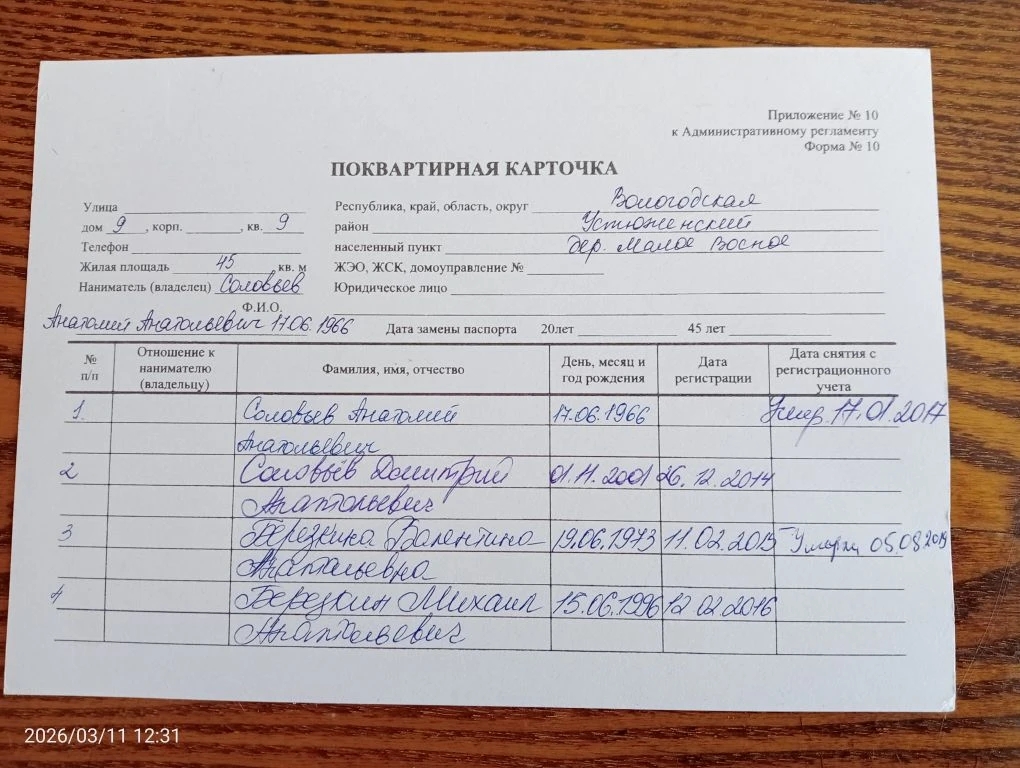 Приложение № 10
к Административному регламенту
Форма № 10
ПОКВАРТИРНАЯ КАРТОЧКА
Улица
дом 9, корп. , кв. 9
Телефон
Жилая площадь 45 кв. м
Наниматель (владелец) Соловьев
Ф.И.О.
Анатолий Анатольевич 17.06.1966
Республика, край, область, округ Вологодская
район Устюженский
населенный пункт дер. Малое Восное
ЖЭО, ЖСК, домоуправление №
Юридическое лицо
Дата замены паспорта 20лет 45 лет
№ п/п Отношение к нанимателю (владельцу) Фамилия, имя, отчество День, месяц и год рождения Дата регистрации Дата снятия с регистрационного учета
1. Соловьев Анатолий 17.06.1966 Умер. 17.01.2017
Анатольевич
2 Соловьёв Дмитрий 01.11.2001 26.12.2014
Анатольевич
3 Березкина Валентина 19.06.1973 11.02.2015 Умерла 05.08.2019
Анатольевна
4 Березкин Михаил 15.06.1996 12 02 2016
Анатольевич
2026/03/11 12:31